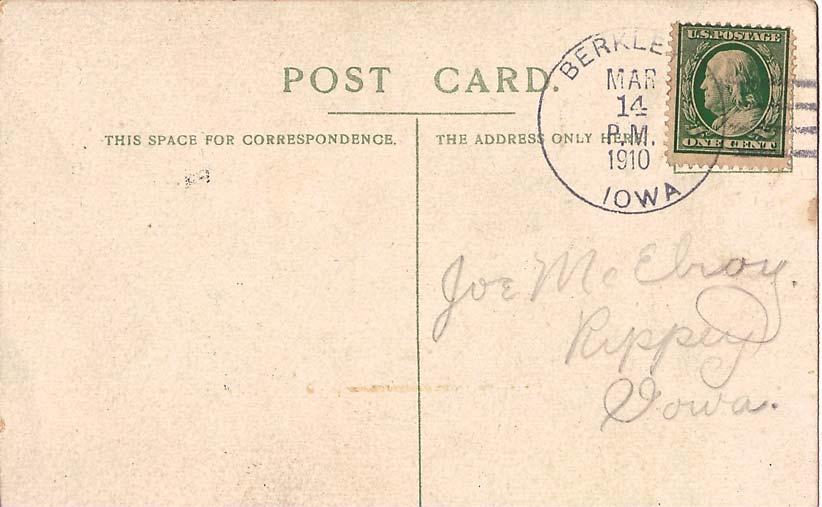 POST CARD.
THIS SPACE FOR CORRESPONDENCE.
THE ADDRESS ONLY HERE.
BERKLEY
MAR
14
P.M.
1910
IOWA
U.S. POSTAGE
ONE CENT
Joe McElroy.
Rippey
Iowa.